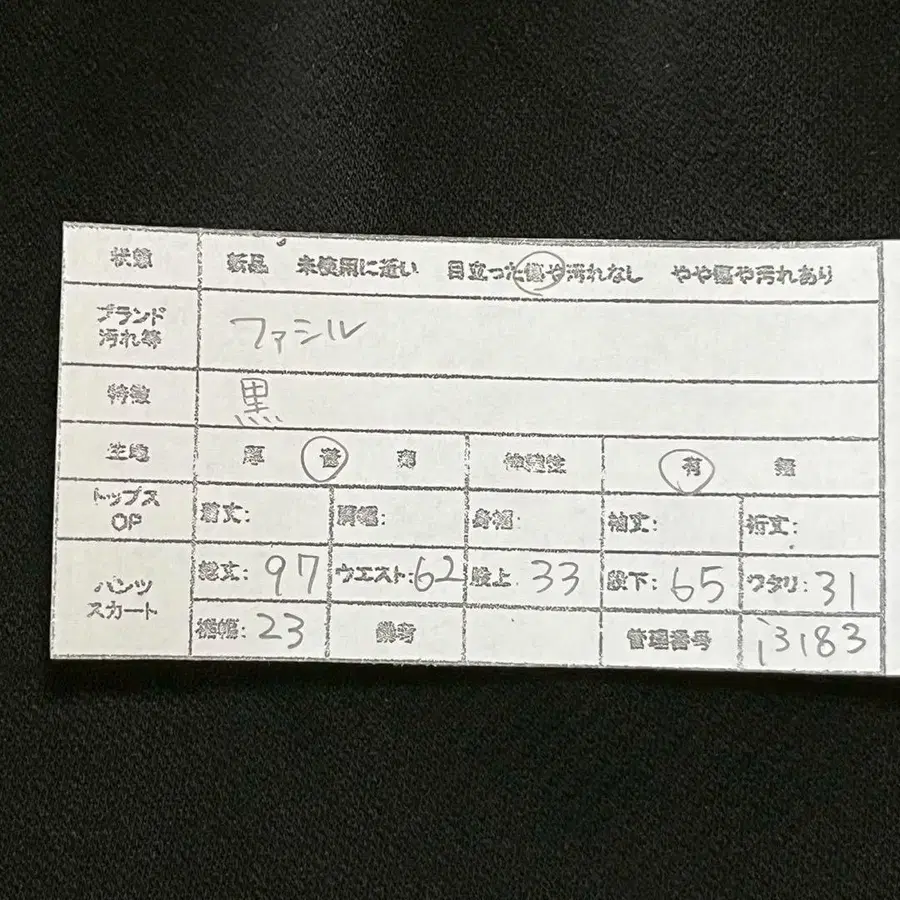 状態 新品 未使用に近い 目立った傷や汚れなし やや傷や汚れあり
ブランド
汚れ等
ファシル
特徴 黒
生地 厚 普 薄 伸縮性 有 無
トップス
OP
着丈: 肩幅: 身幅: 袖丈: 裄丈:
パンツ
スカート
総丈: 97 ウエスト: 62 股上 33 股下: 65 ワタリ: 31
裾幅: 23 備考 管理番号 i3183